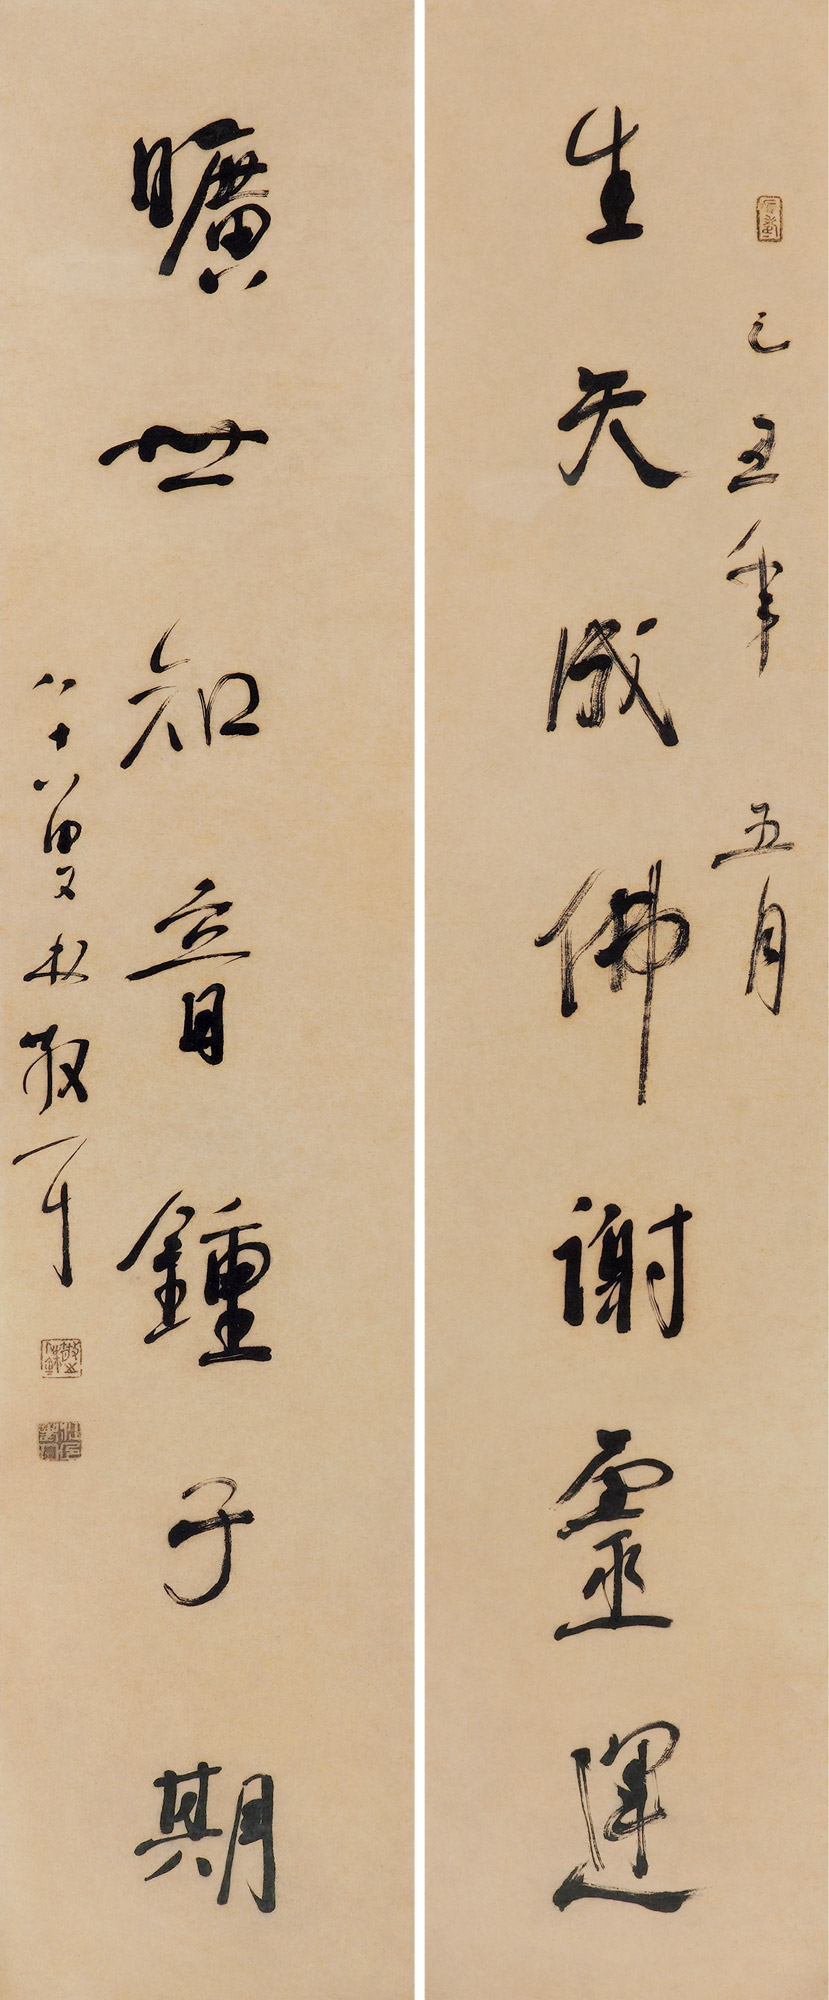 乙丑年 五月
生天成佛謝靈運
曠世知音鍾子期
八十八叟林散耳